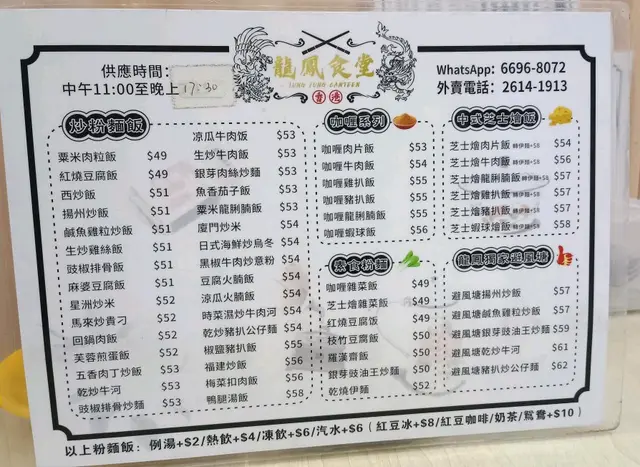 供應時間：
中午11:00至晚上 17:30
龍鳳食堂
LUNG FUNG CANTEEN
香港
WhatsApp：6696-8072
外賣電話：2614-1913
炒粉麵飯
粟米肉粒飯 $49
紅燒豆腐飯 $49
西炒飯 $51
揚州炒飯 $51
鹹魚雞粒炒飯 $51
生炒雞絲飯 $51
豉椒排骨飯 $51
麻婆豆腐飯 $51
星洲炒米 $52
馬來炒貴刁 $52
回鍋肉飯 $52
芙蓉煎蛋飯 $52
五香肉丁炒飯 $53
乾炒牛河 $53
豉椒排骨炒麵 $53
凉瓜牛肉饭 $53
生炒牛肉飯 $53
銀芽肉絲炒麵 $53
魚香茄子飯 $53
粟米龍脷腩飯 $53
廈門炒米 $54
日式海鮮炒烏冬 $54
黑椒牛肉炒意粉 $54
豆腐火腩飯 $54
涼瓜火腩飯 $54
時菜濕炒牛肉河 $54
乾炒豬扒公仔麵 $54
椒鹽豬扒飯 $55
福建炒飯 $56
梅菜扣肉飯 $56
鴨腿湯飯 $58
咖喱系列
咖喱肉片飯 $53
咖喱牛肉飯 $54
咖喱雞扒飯 $55
咖喱豬扒飯 $55
咖喱龍脷腩飯 $55
咖喱蝦球飯 $56
素食粉麵
咖喱雜菜飯 $49
芝士燴雜菜飯 $49
紅燒豆腐饭 $49
枝竹豆腐飯 $50
羅漢齋飯 $50
銀芽豉油王炒麵 $50
乾燒伊麵 $52
中式芝士燴飯
芝士燴肉片飯 轉伊麵+$8 $54
芝士燴牛肉飯 轉伊麵+$8 $56
芝士燴龍脷腩飯 轉伊麵+$8 $57
芝士燴雞扒飯 轉伊麵+$8 $57
芝士燴豬扒飯 轉伊麵+$8 $57
芝士蝦球燴飯 轉伊麵+$8 $58
龍鳳獨家避風塘
避風塘揚州炒飯 $57
避風塘鹹魚雞粒炒飯 $57
避風塘銀芽豉油王炒麵 $59
避風塘乾炒牛河 $61
避風塘豬扒炒公仔麵 $62
以上粉麵飯：例湯+$2/熱飲+$4/凍飲+$6/汽水+$6（紅豆冰+$8/紅豆咖啡/奶茶/鴛鴦+$10）